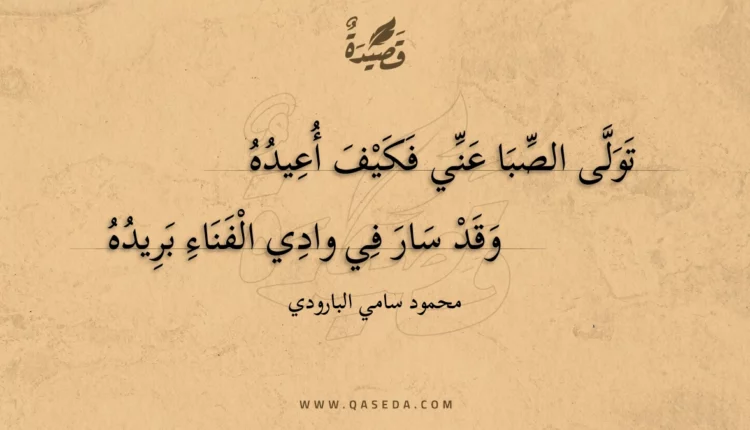 قَصِيدَةٌ
تَوَلَّى الصِّبَا عَنِّي فَكَيْفَ أُعِيدُهُ
وَقَدْ سَارَ فِي وادِي الْفَنَاءِ بَرِيدُهُ
محمود سامي البارودي
WWW.QASEDA.COM